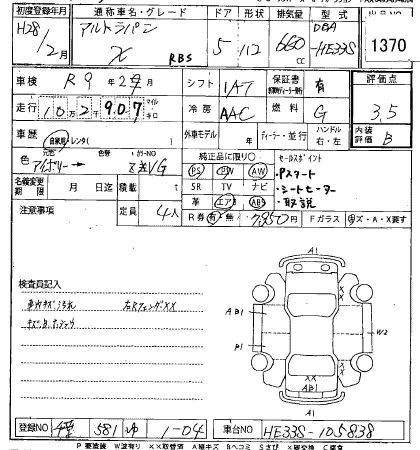 初度登録年月 通称車名・グレード ドア 形状 排気量 型式 出品NO
H28/2月 アルトラパン X RBS 5 112 660 cc DBA-HE33S 1370
車検 R9 2年 月 シフト 1AT 保証書 有 評価点
走行 10万2千907 マイル キロ 冷房 AAC 燃料 G 3.5
車歴 自家用・レンタ( ) 外車モデル 年 ディーラー・並行 ハンドル 右・左 内装評価 B
色 元色 アイボリー→ 色替 カラーNO ZVG
純正品に限り○ セールスポイント
PS PW AW ・Pスタート
名義変更期限 月 日迄 積載 t SR TV ナビ ・シートヒーター
革 エアB ABS ・取説
注意事項 定員 4人 R券 有 無 7,950円 Fガラス ・X・A・X要す
検査員記入
車内キズ汚れ 右RフェンダXX
A1
AB1
B1
W2
XX
XX
AB1
A1
登録NO 581 ゆ 1-04 車台NO HE33S-105838
P要塗装 W波有り XX取替済 A線キズ Bヘコミ Sさび X要交換 C腐食